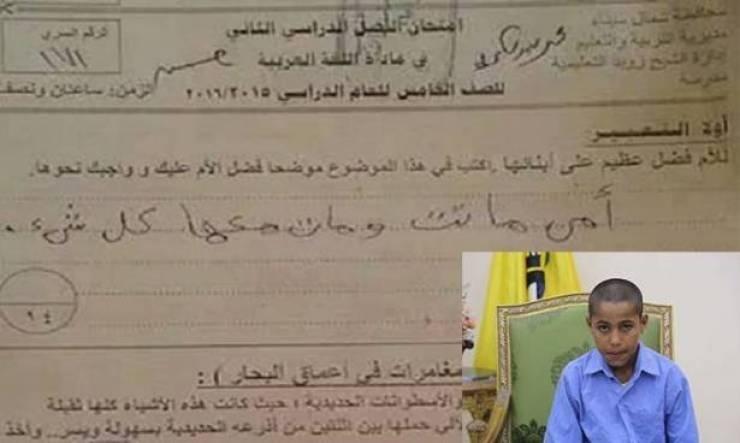 محافظة شمال سيناء
مديرية التربية والتعليم
إدارة الشيخ زويد التعليمية
مدرسة
امتحان الفصل الدراسي الثاني
في مادة اللغة العربية
للصف الخامس للعام الدراسي ٢٠١٦/٢٠١٥
الرقم السري
الزمن: ساعتان ونصف
أولا التعبير:
للأم فضل عظيم على أبنائها .اكتب في هذا الموضوع موضحا فضل الأم عليك و واجبك نحوها.
أمي ماتت ومات معها كل شيء .
مغامرات في أعماق البحار ) :
والأسطوانات الحديدية ؛ حيث كانت هذه الأشياء كلها ثقيلة
حملها بين اثنتين من أذرعه الحديدية بسهولة ويسر.. وأخذ